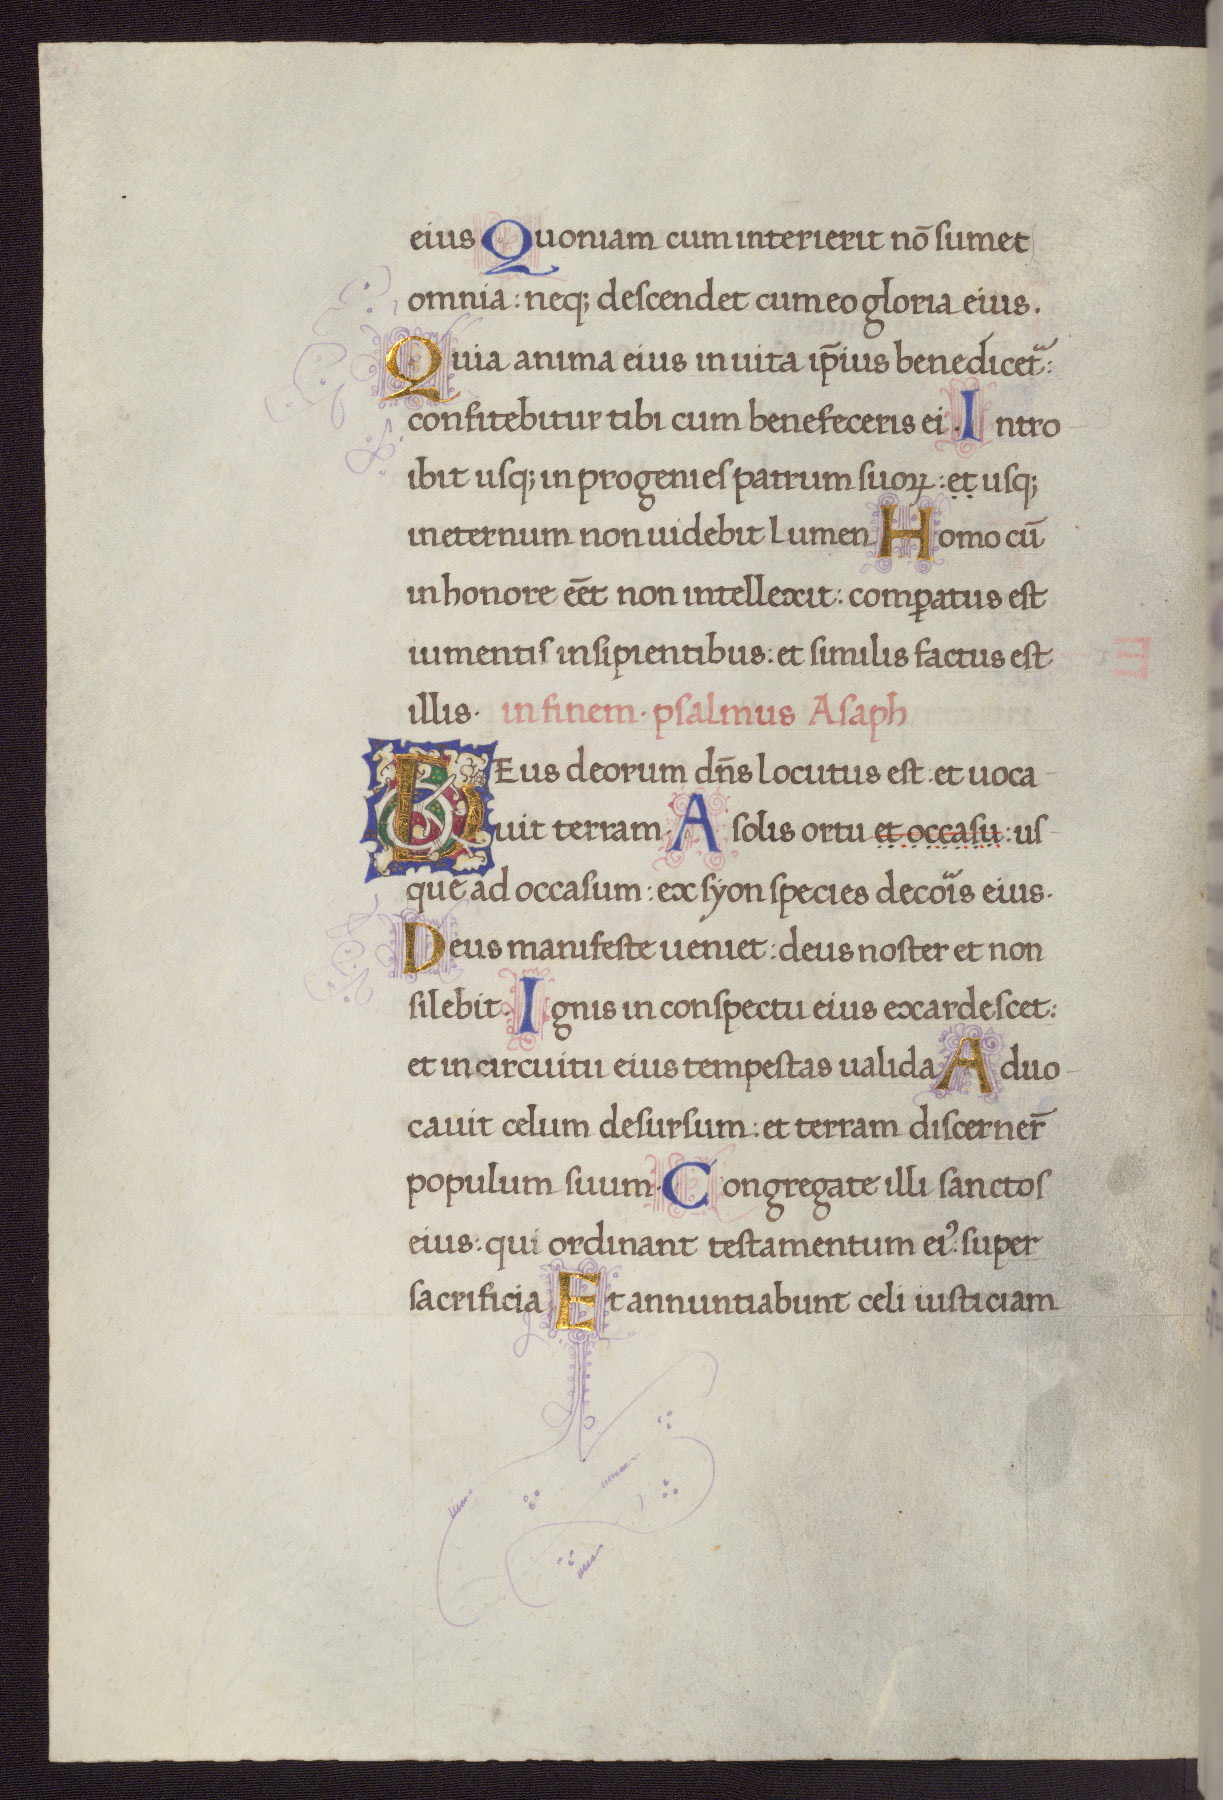 eius Quoniam cum interierit nō sumet
omnia : neq; descendet cum eo gloria eius.
Quia anima eius in uita ip̄ius benedicet᷑ :
confitebitur tibi cum benefeceris ei . Intro
ibit usq; in progenies patrum suoꝝ : et usq;
in eternum non uidebit lumen Homo cū
in honore eēt non intellexit : comꝑatus est
iumentis insipientibus : et similis factus est
illis · in finem · psalmus Asaph
DEus deorum dn̄s locutus est . et uoca
uit terram . A solis ortu et occasu : us
que ad occasum : ex syon species decoris eius ·
Deus manifeste ueniet : deus noster et non
silebit . Ignis in conspectu eius exardescet :
et in circuitu eius tempestas ualida Aduo
cauit celum desursum : et terram discerner̄
populum suum . Congregate illi sanctos
eius : qui ordinant testamentum eiꝰ : super
sacrificia Et annuntiabunt celi iusticiam